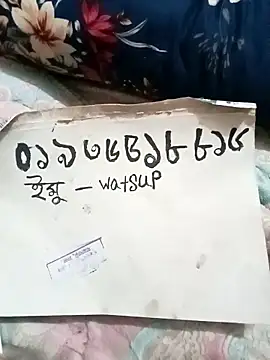 ০১৯৩৬৪১৮৮১৫
ইমু - watsup